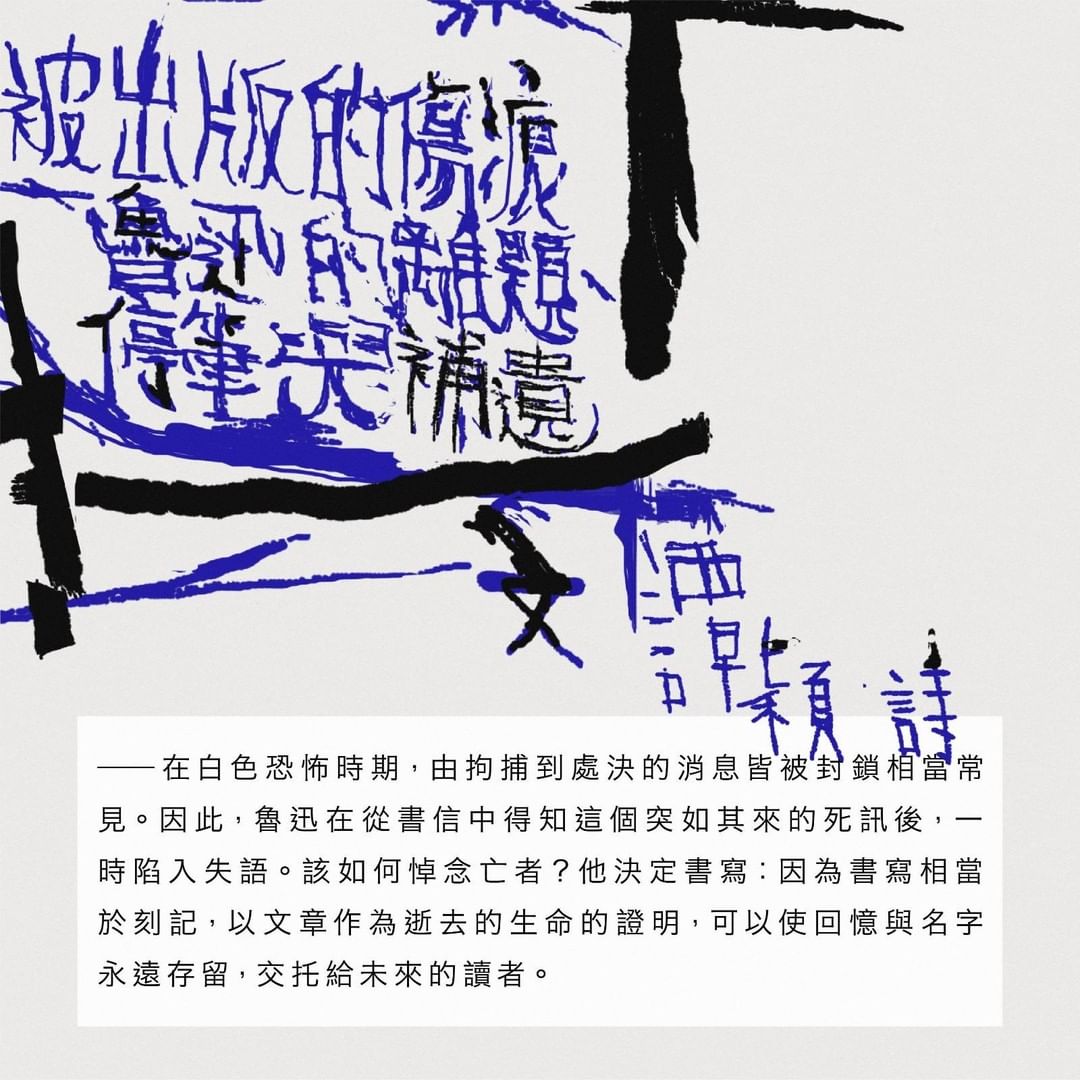 被出版的傷痕
魯迅的難題、
停筆與補遺
文 譚穎詩
——在白色恐怖時期，由拘捕到處決的消息皆被封鎖相當常
見。因此，魯迅在從書信中得知這個突如其來的死訊後，一
時陷入失語。該如何悼念亡者？他決定書寫：因為書寫相當
於刻記，以文章作為逝去的生命的證明，可以使回憶與名字
永遠存留，交托給未來的讀者。